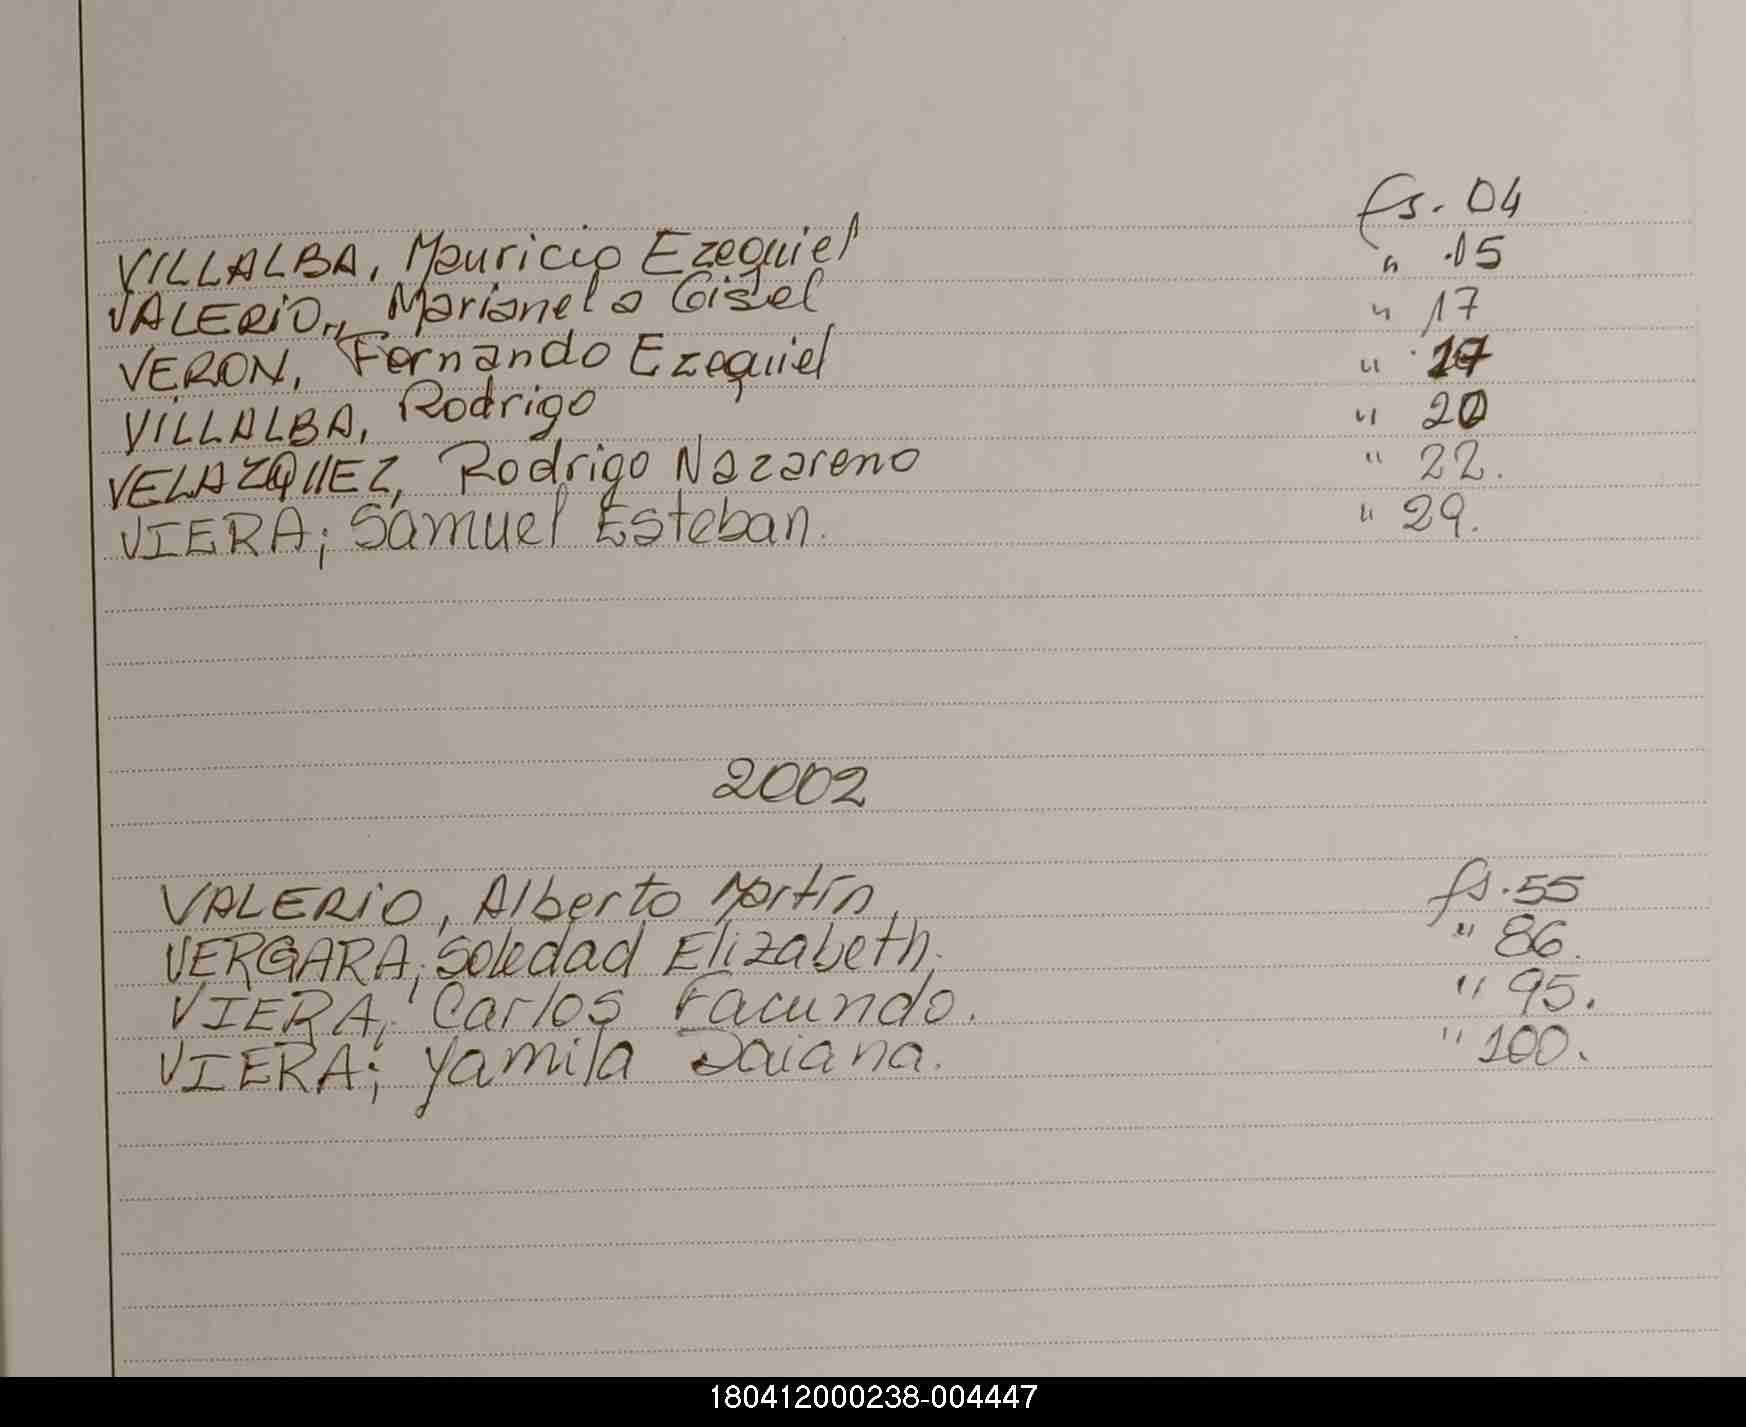 fs. 04
VILLALBA, Mauricio Ezequiel " 15
VALERIO,, Marianela Gisel " 17
VERON, Fernando Ezequiel " 17
VILLALBA, Rodrigo " 20
VELAZQUEZ, Rodrigo Nazareno " 22.
VIERA; Samuel Esteban. " 29.
2002
VALERIO, Alberto Martín, fs. 55
VERGARA; Soledad Elizabeth. " 86.
VIERA; Carlos Facundo. " 95.
VIERA; Yamila Daiana. " 100.
180412000238-004447